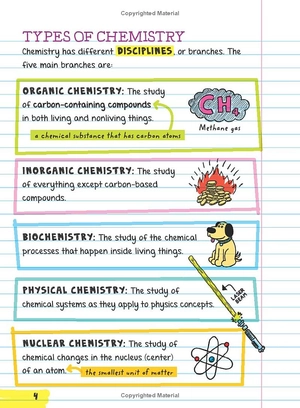 Copyrighted Material
TYPES OF CHEMISTRY
Chemistry has different DISCIPLINES, or branches. The
five main branches are:
ORGANIC CHEMISTRY: The study
of carbon-containing compounds
in both living and nonliving things.
a chemical substance that has carbon atoms
CH4
Methane gas
INORGANIC CHEMISTRY: The study
of everything except carbon-based
compounds.
BIOCHEMISTRY: The study of the chemical
processes that happen inside living things.
PHYSICAL CHEMISTRY: The study of
chemical systems as they apply to physics concepts.
LASER
BEAM
NUCLEAR CHEMISTRY: The study of
chemical changes in the nucleus (center)
of an atom.
the smallest unit of matter
4
Copyrighted Material